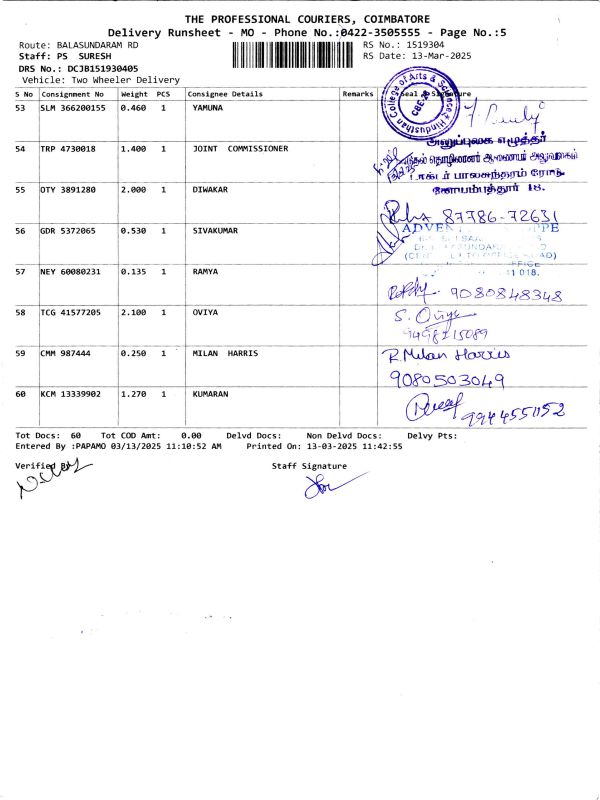 THE PROFESSIONAL COURIERS, COIMBATORE
Delivery Runsheet - MO - Phone No.:0422-3505555 - Page No.:5
Route: BALASUNDARAM RD
RS No.: 1519304
Staff: PS SURESH
RS Date: 13-Mar-2025
DRS No.: DCJB151930405
Vehicle: Two Wheeler Delivery
S No Consignment No Weight PCS Consignee Details Remarks Seal & Signature
Hindusthan College of Arts & Science
53 SLM 366200155 0.460 1 YAMUNA
அலுவலக எழுத்தர்
54 TRP 4730018 1.400 1 JOINT COMMISSIONER
டாக்டர் பாலசுந்தரம் ரோடு
55 OTY 3891280 2.000 1 DIWAKAR
கோயம்புத்தூர் 18.
87786-72631
56 GDR 5372065 0.530 1 SIVAKUMAR
57 NEY 60080231 0.135 1 RAMYA
9080848348
58 TCG 41577205 2.100 1 OVIYA
S. Oviya
9498215089
59 CMM 987444 0.250 1 MILAN HARRIS
R.Milan Harris
9080503049
60 KCM 13339902 1.270 1 KUMARAN
9944551152
Tot Docs: 60 Tot COD Amt: 0.00 Delvd Docs: Non Delvd Docs: Delvy Pts:
Entered By :PAPAMO 03/13/2025 11:10:52 AM Printed On: 13-03-2025 11:42:55
Verified By
Staff Signature